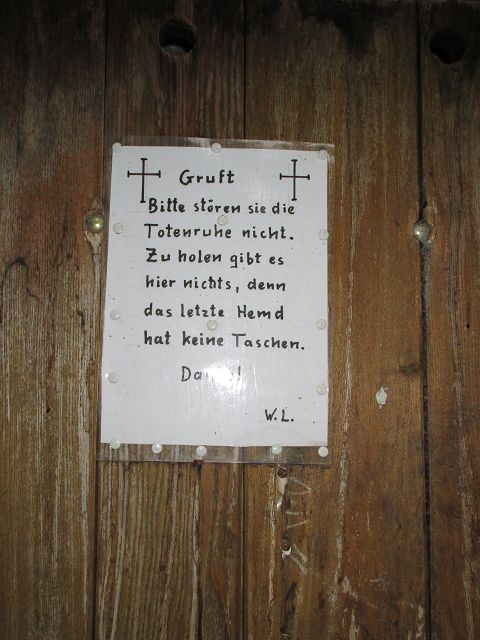 Gruft
Bitte stören sie die
Totenruhe nicht.
Zu holen gibt es
hier nichts, denn
das letzte Hemd
hat keine Taschen.
W.L.